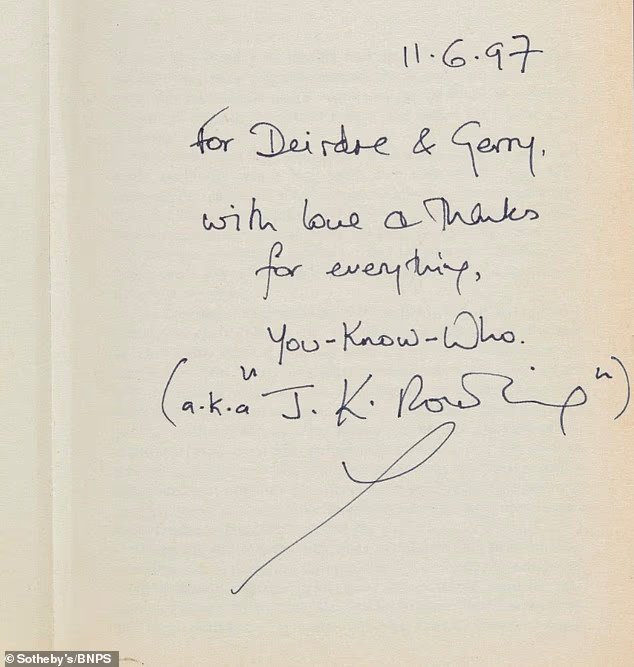 11.6.97
for Deirdre & Gerry,
with love & Thanks
for everything,
You-Know-Who.
(a.k.a "J. K. Rowling")
© Sotheby's/BNPS